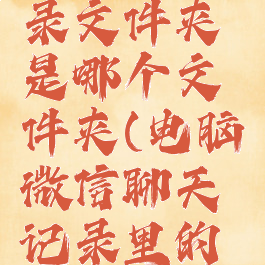 录文件夹
是哪个文
件夹(电脑
微信聊天
记录里的